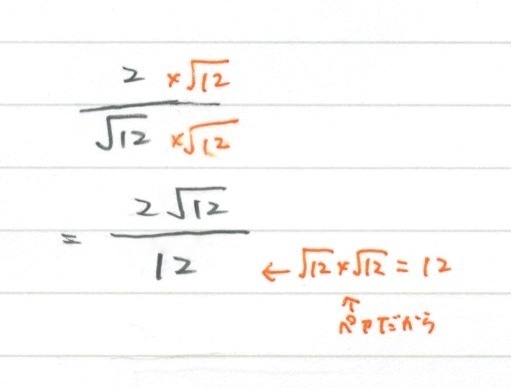 2 ×√12
√12 ×√12
= 2√12
12 ← √12×√12 = 12
↑
ペアだから